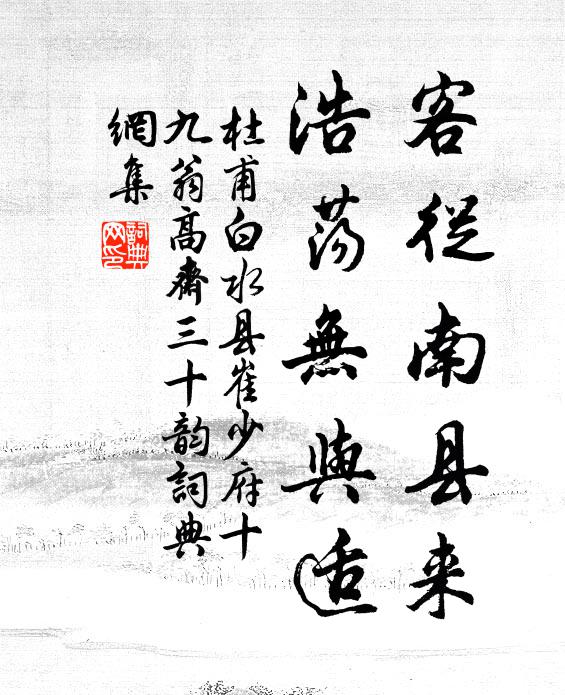 客從南县来
浩荡無與适
杜甫白水县崔少府十
九翁高齋三十韵詞典
網集
詞典
网印